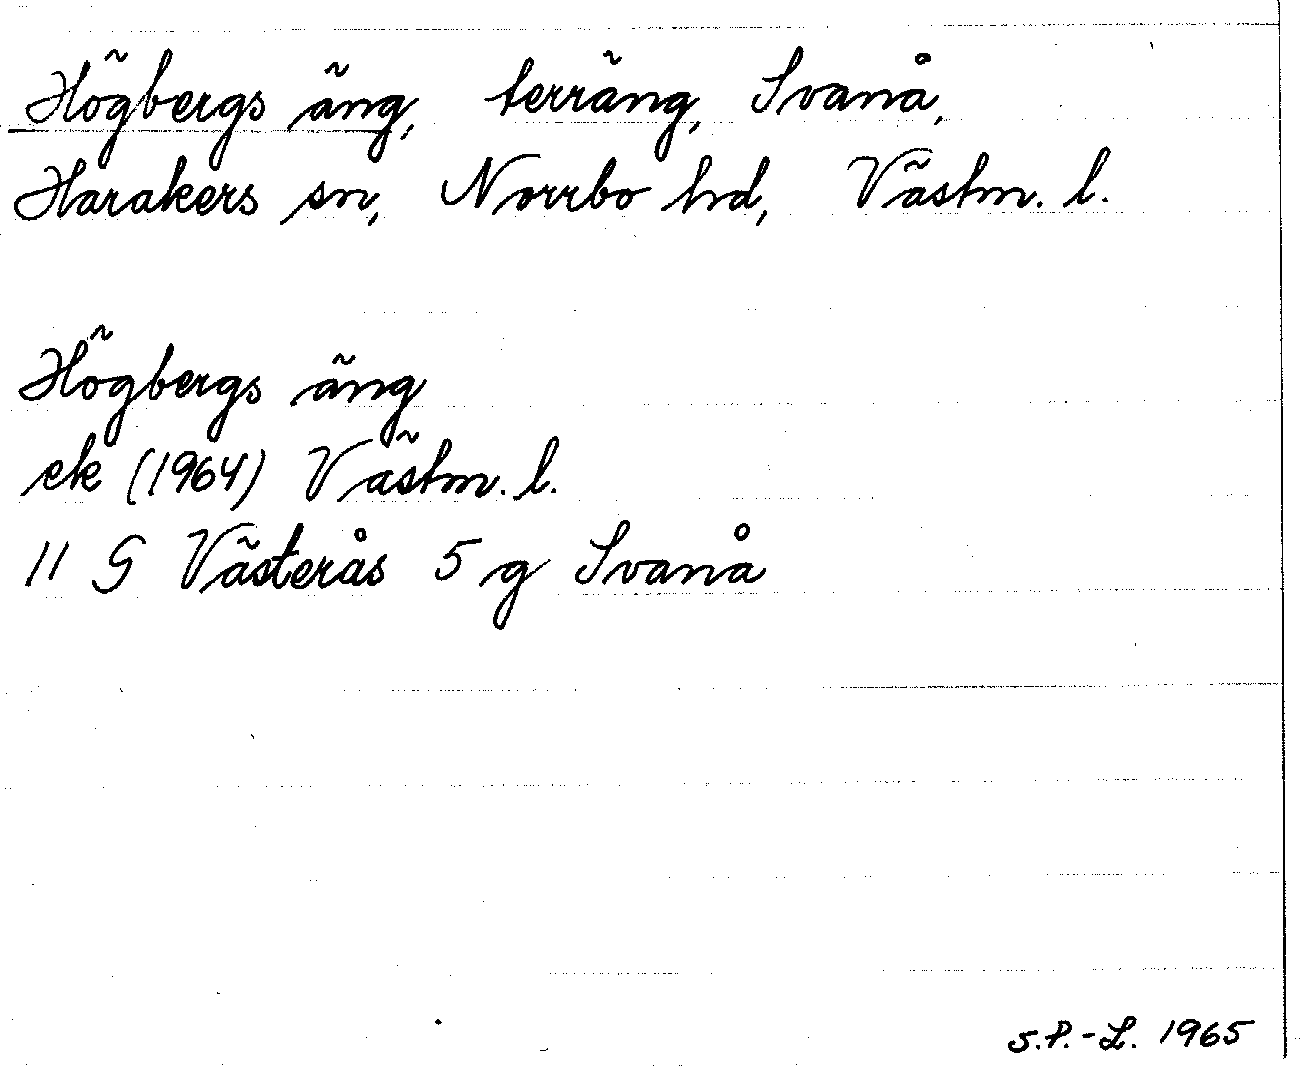 Högbergs äng, terräng, Svanå,
Harakers sn, Norrbo hd, Västm. l.
Högbergs äng
ek (1964) Västm. l.
11 G Västerås 5 g Svanå
S.P.-L. 1965